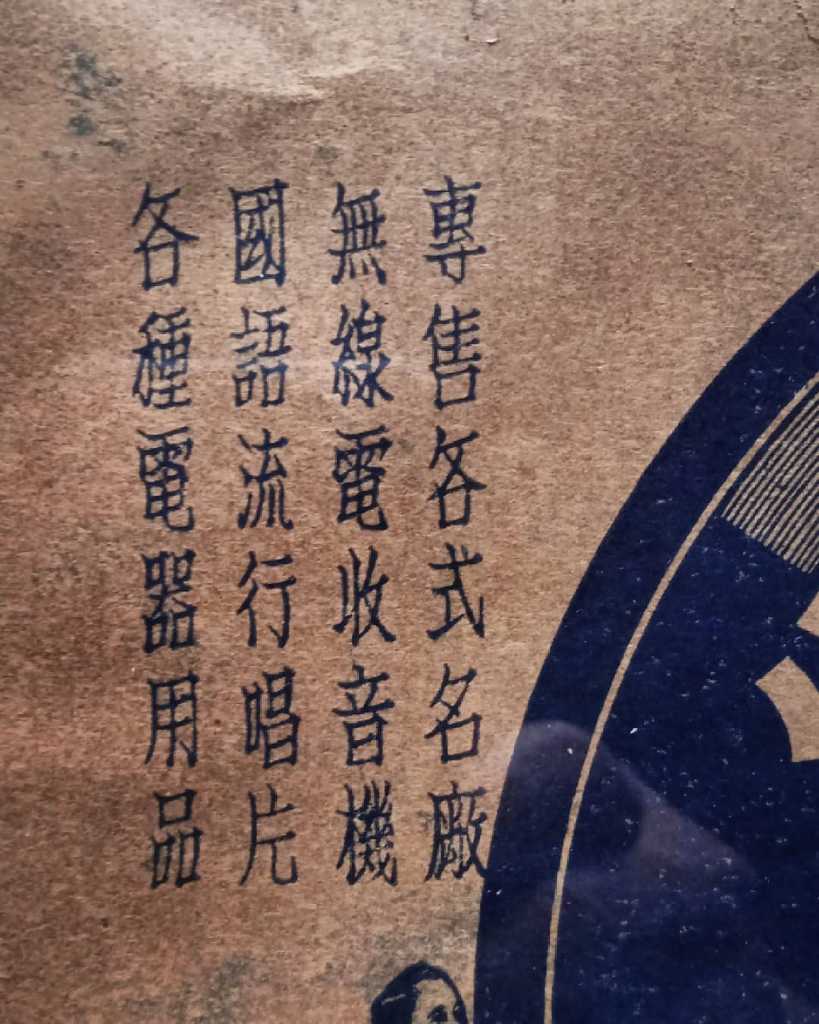 專售各式名廠
無線電收音機
國語流行唱片
各種電器用品